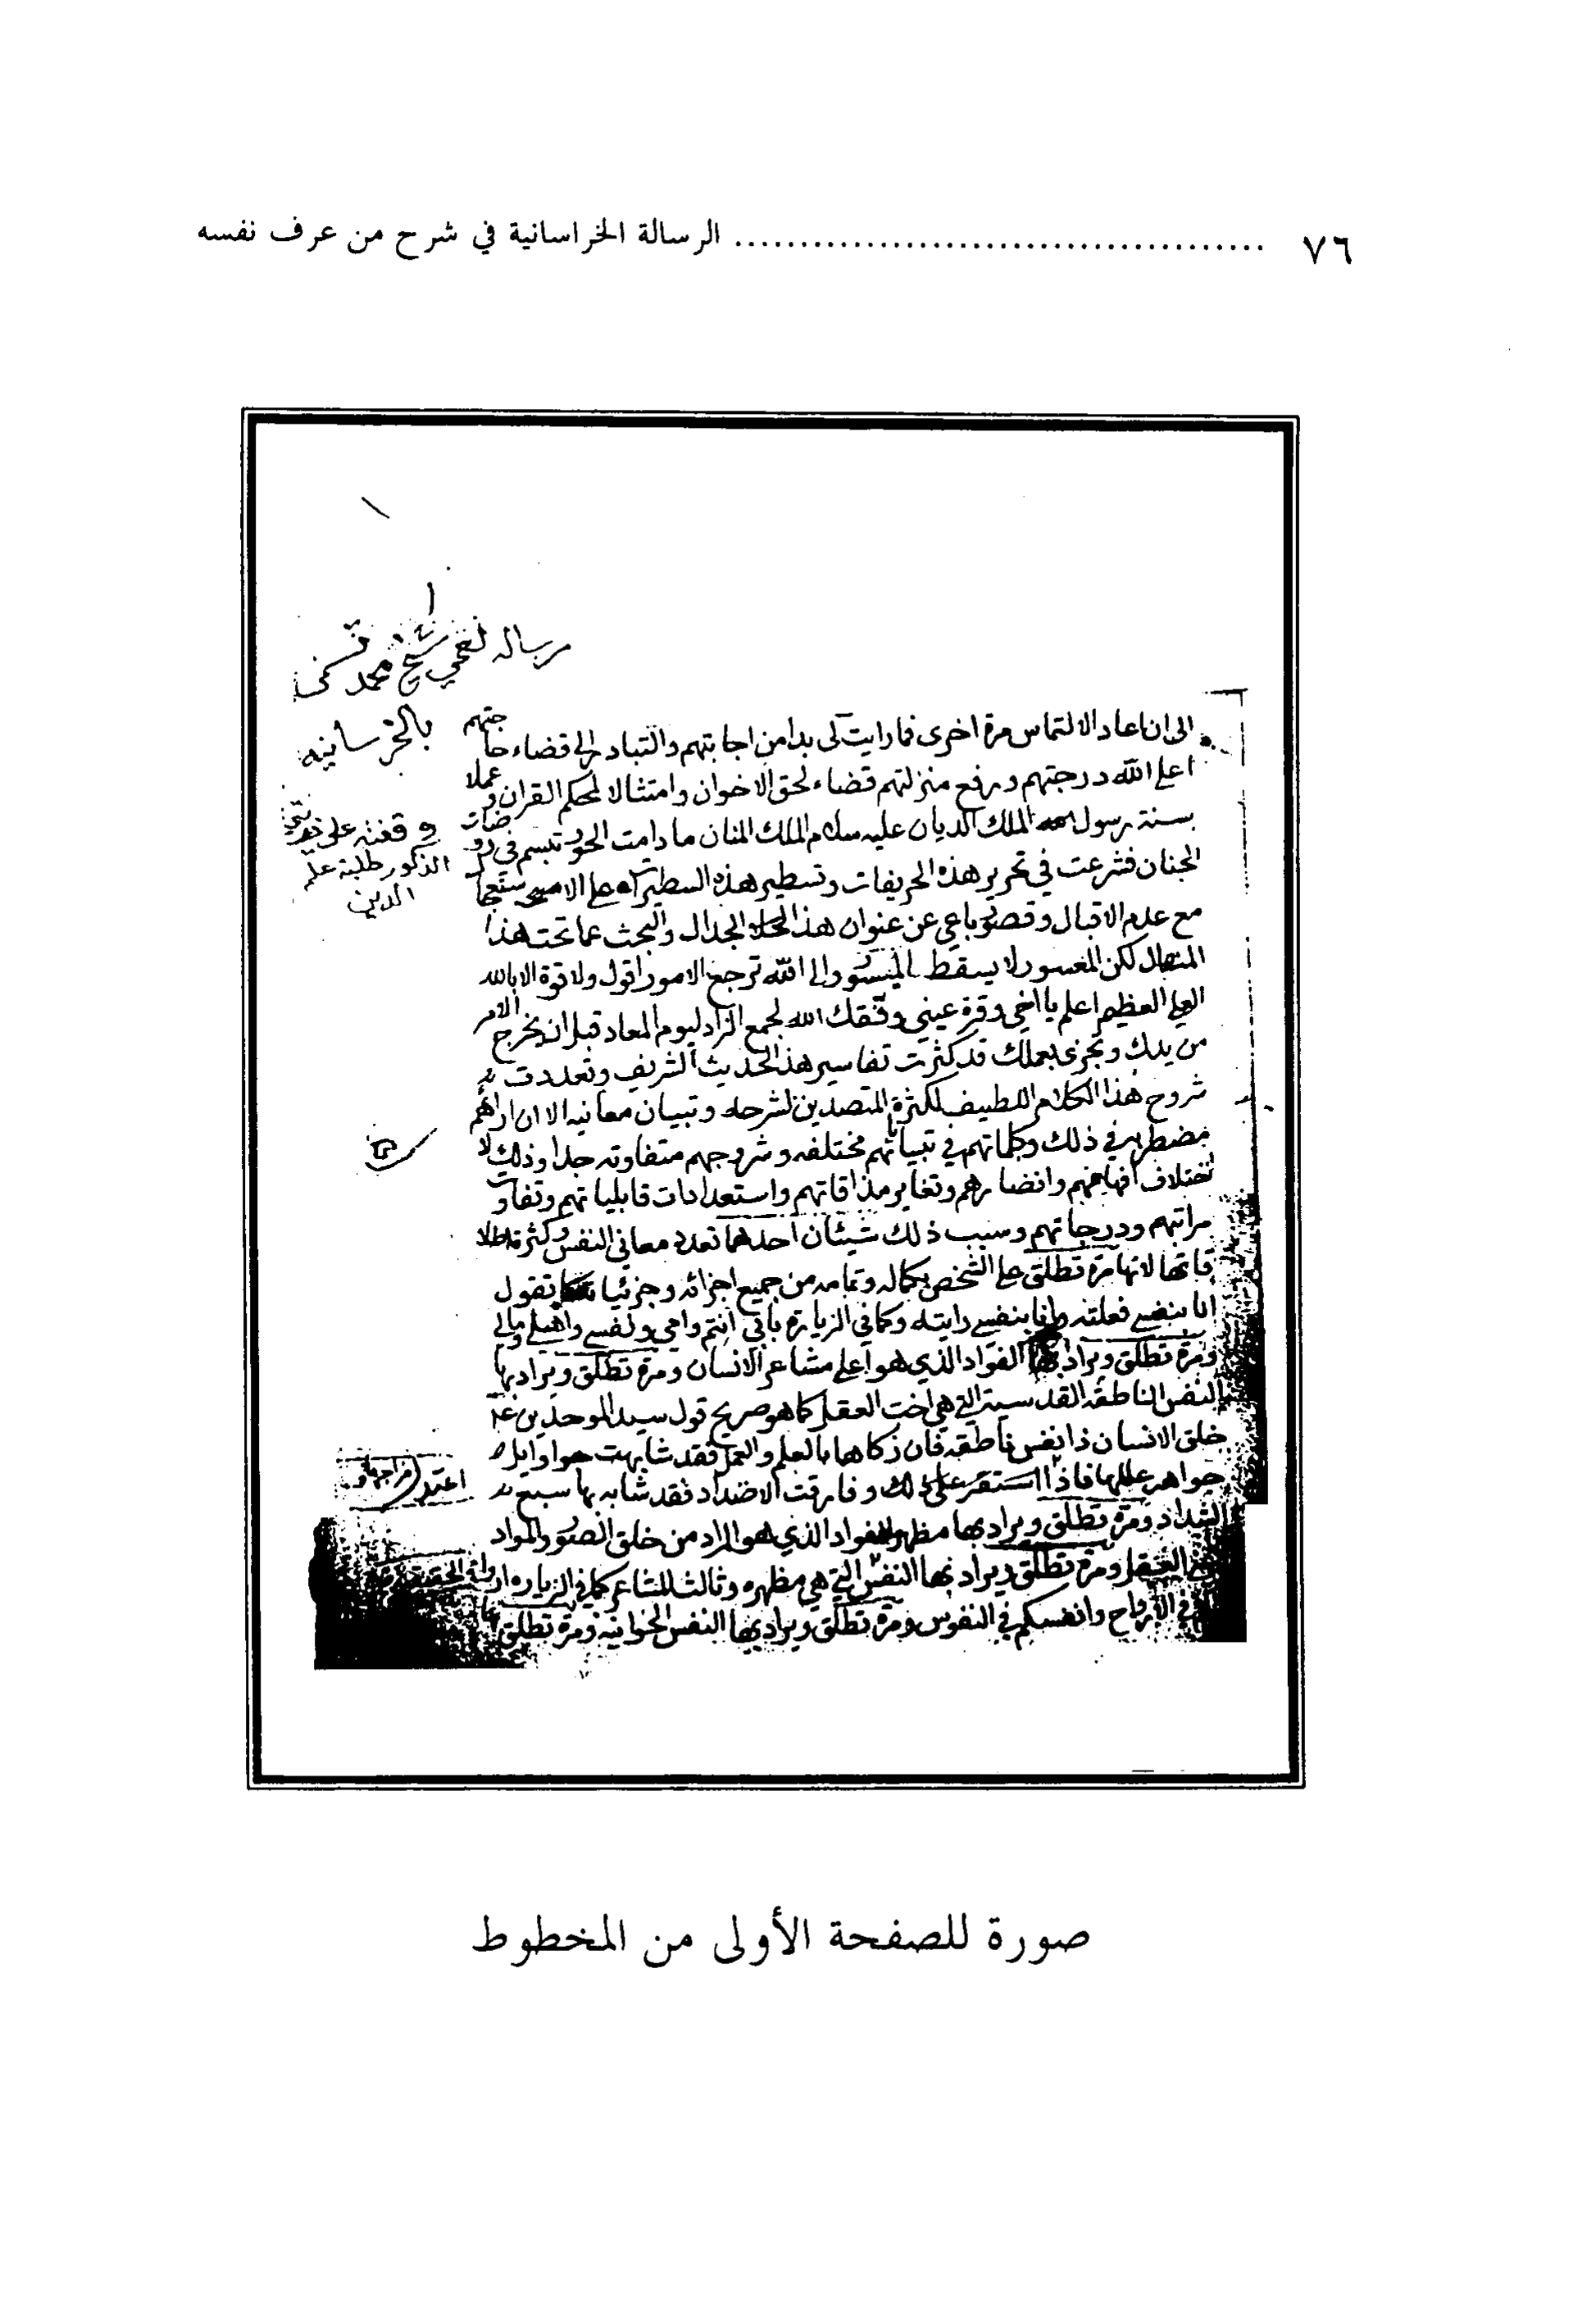 ٧٦ ........................................ الرسالة الخراسانية في شرح من عرف نفسه
رساله لفخمي شيخ محمد
بالخرسانيه
وقفته على ذريتي
الذكور طلبة علم
الدين
الى ان عاد الالتماس مرة اخرى فما رايت لى بدا من اجابتهم والتبادر الى قضاء حاجتهم
اعلى الله درجتهم ورفع منزلتهم قضاء لحق الاخوان وامتثالا لمحكم القران وعملا
بسنة رسول الملك الديان عليه سلام الملك المنان ما دامت الحور تبسم في روضات
الجنان فشرعت في تحرير هذه الحريفات وتسطير هذه السطيرات على الا مستعجلا
مع عدم الاقبال وقصور باعي عن عنوان هذا الجدال والبحث عما تحت هذا
المنهال لكن المعسور لا يسقط الميسور والى الله ترجع الامور اقول ولا قوة الا بالله
العلي العظيم اعلم يا اخي وقرة عيني وفقك الله لجمع الزاد ليوم المعاد قبل ان يخرج الامر
من يدك وتجزى بعملك قد كثرت تفاسير هذا الحديث الشريف وتعددت
شروح هذا الكلام اللطيف لكثرة المتصدين لشرحه وتبيان معانيه الا ان ارائهم
مضطربه في ذلك وكلماتهم في تبيانهم مختلفه وشروحهم متفاوته جدا وذلك لا
ختلاف افهامهم وانضارهم وتغاير مذاقاتهم واستعدادات قابلياتهم وتفاوت
مراتبهم ودرجاتهم وسبب ذلك شيئان احدهما تعدد معاني النفس وكثرة اطلا
قاتها لانها مرة تطلق على الشخص بكماله وتمامه من جميع اجزائه وجزئياته كما تقول
انا بنفسي فعلته وانا بنفسي رايته وكما في الزيارة بابي انتم وامي ونفسي واهلي ومالي
ومرة تطلق ويراد بها الفؤاد الذي هو اعلى مشاعر الانسان ومرة تطلق ويراد بها
النفس الناطقه القدسية التي هي اخت العقل كما هو صريح قول سيد الموحدين
خلق الانسان ذا نفس ناطقه فان زكاها بالعلم والعمل فقد شابهت اوايل
جواهر عللها فاذا استقر على ذلك وفارقت الاضداد فقد شابه بها سبع
الشداد ومرة تطلق ويراد بها مظهر الفواد الذي هو المراد من خلق الصور والمواد
العقل ومرة تطلق ويراد بها النفس التي هي مظهره وثالث المشاعر كما في الزياره
في الارواح وانفسكم في النفوس ومرة تطلق ويراد بها النفس الحيوانيه ومرة تطلق
صورة للصفحة الأولى من المخطوط